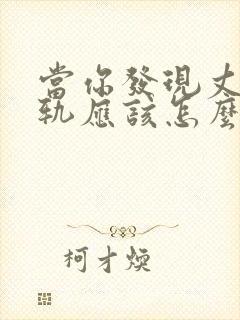 當你發現丈
軌應該怎麼
柯才煥